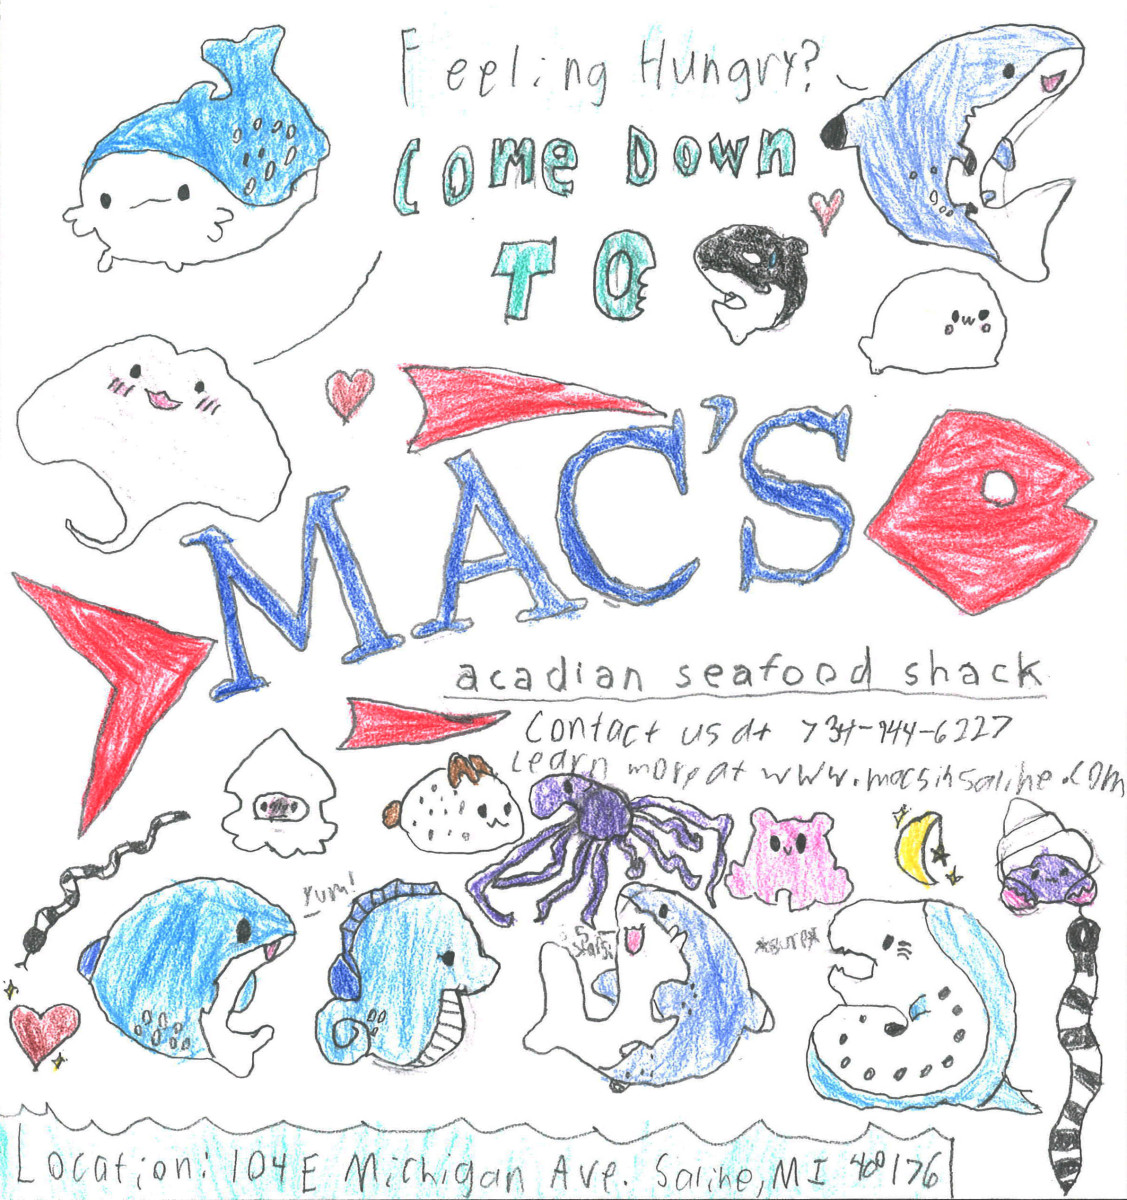 Feeling Hungry?
COME DOWN
TO
MAC'S
acadian seafood shack
Contact us at 734-944-6227
Learn more at www.macsinsaline.com
yum!
5
stars!
*BURP*
Location: 104 E Michigan Ave. Saline, MI 48176